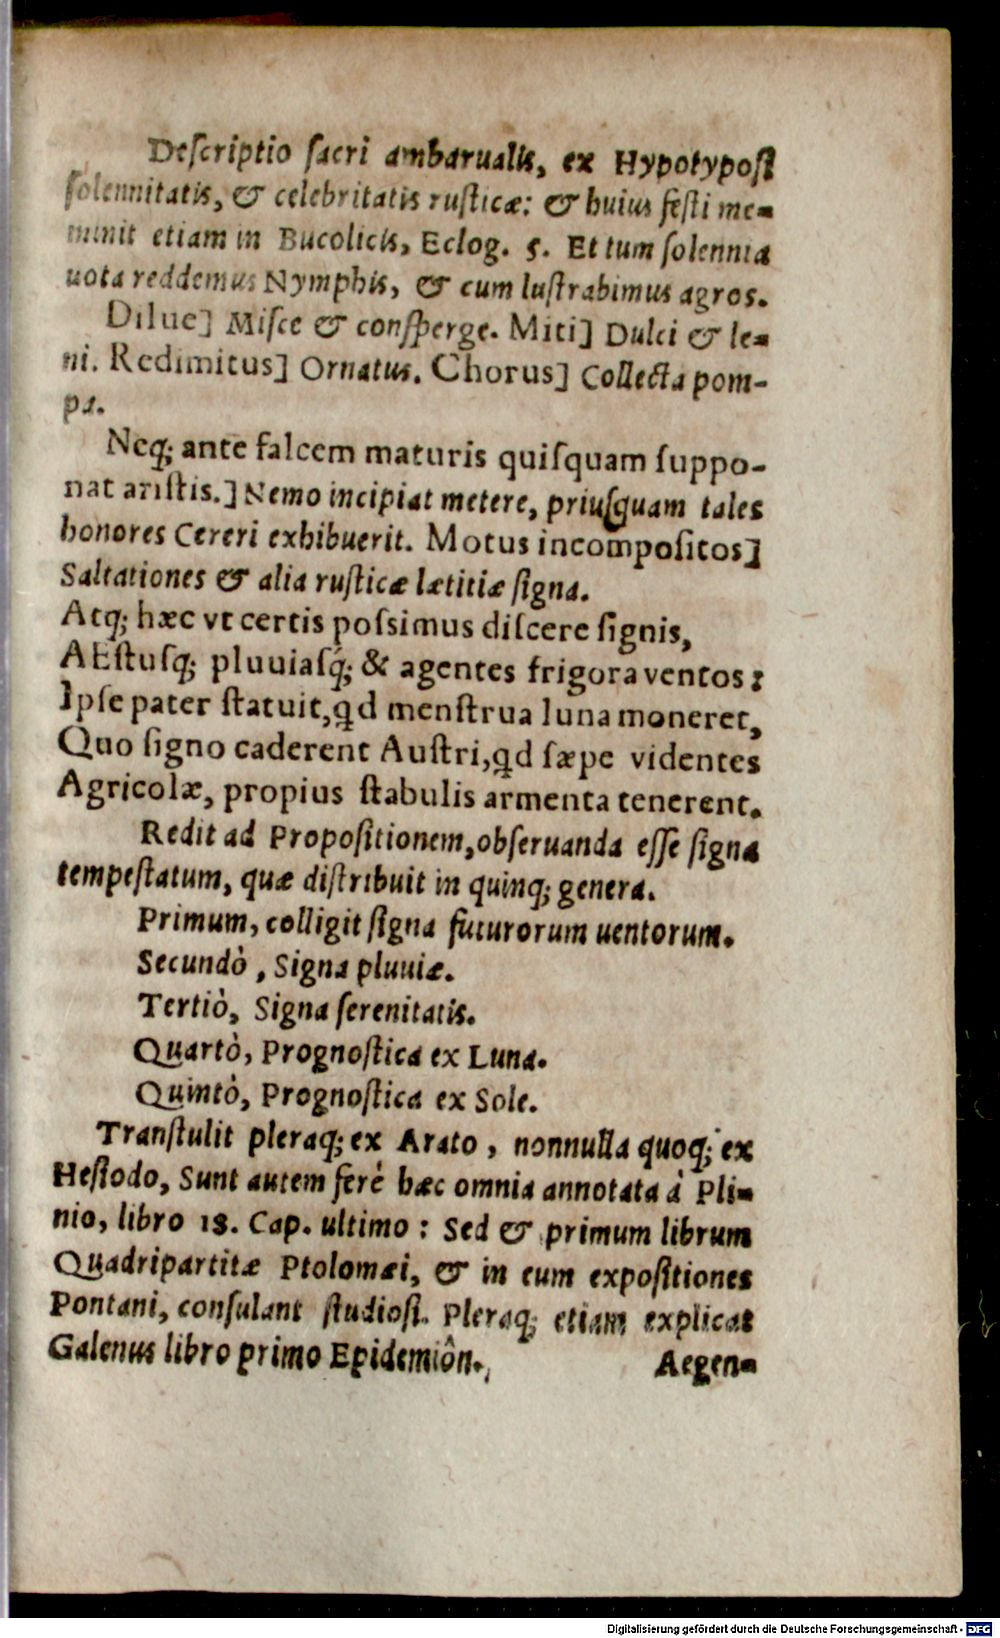 Deſcriptio ſacri ambarualis, ex Hypotypoſi
ſolennitatis, & celebritatis ruſticæ: & huius feſti me-
minit etiam in Bucolicis, Eclog. 5. Et tum ſolennia
uota reddemus Nymphis, & cum luſtrabimus agros.
Dilue] Miſce & conſperge. Miti] Dulci & le-
ni. Redimitus] Ornatus. Chorus] Collecta pom-
pa.
Neq; ante falcem maturis quiſquam ſuppo-
nat ariſtis.] Nemo incipiat metere, priuſquam tales
honores Cereri exhibuerit. Motus incompoſitos]
Saltationes & alia ruſticæ lætitiæ ſigna.
Atq; hæc vt certis poſsimus diſcere ſignis,
AEſtuſq; pluuiaſq́; & agentes frigora ventos:
Ipſe pater ſtatuit, qd menſtrua luna moneret,
Quo ſigno caderent Auſtri, qd ſæpe videntes
Agricolæ, propius ſtabulis armenta tenerent.
Redit ad Propoſitionem, obſeruanda eſſe ſigna
tempeſtatum, quæ diſtribuit in quinq; genera.
Primum, colligit ſigna futurorum uentorum.
Secundò, Signa pluuiæ.
Tertiò, Signa ſerenitatis.
Quartò, Prognoſtica ex Luna.
Quintò, Prognoſtica ex Sole.
Tranſtulit pleraq; ex Arato, nonnulla quoq; ex
Heſiodo, Sunt autem ferè hæc omnia annotata à Pli-
nio, libro 18. Cap. ultimo: Sed & primum librum
Quadripartitæ Ptolomæi, & in eum expoſitiones
Pontani, conſulant ſtudioſi. Pleraq; etiam explicat
Galenus libro primo Epidemiôn.
Aegen-
Digitalisierung gefördert durch die Deutsche Forschungsgemeinschaft - DFG